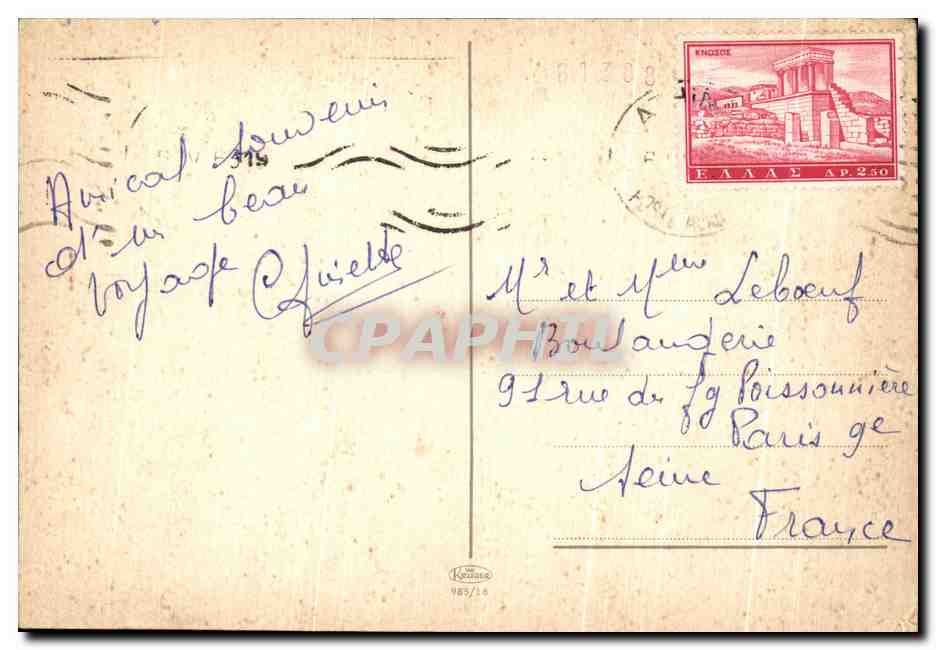 Amical souvenir
d'un beau
voyage
ΚΝΩΣΟΣ
ΕΛΛΑΣ ΔΡ. 2.50
Mr et Mme Lebœuf
Boulangerie
91 rue du Fg Poissonnière
Paris 9e
Seine
France
CPAPHIL
Krüger
985/16